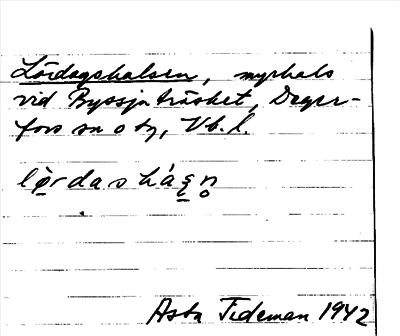 Lördagshalsen, myrhals
vid Byssjaträsket, Deger-
fors sn o tg, Vb. l.
lòrdasháḷṣṇ
Asta Tideman 1942